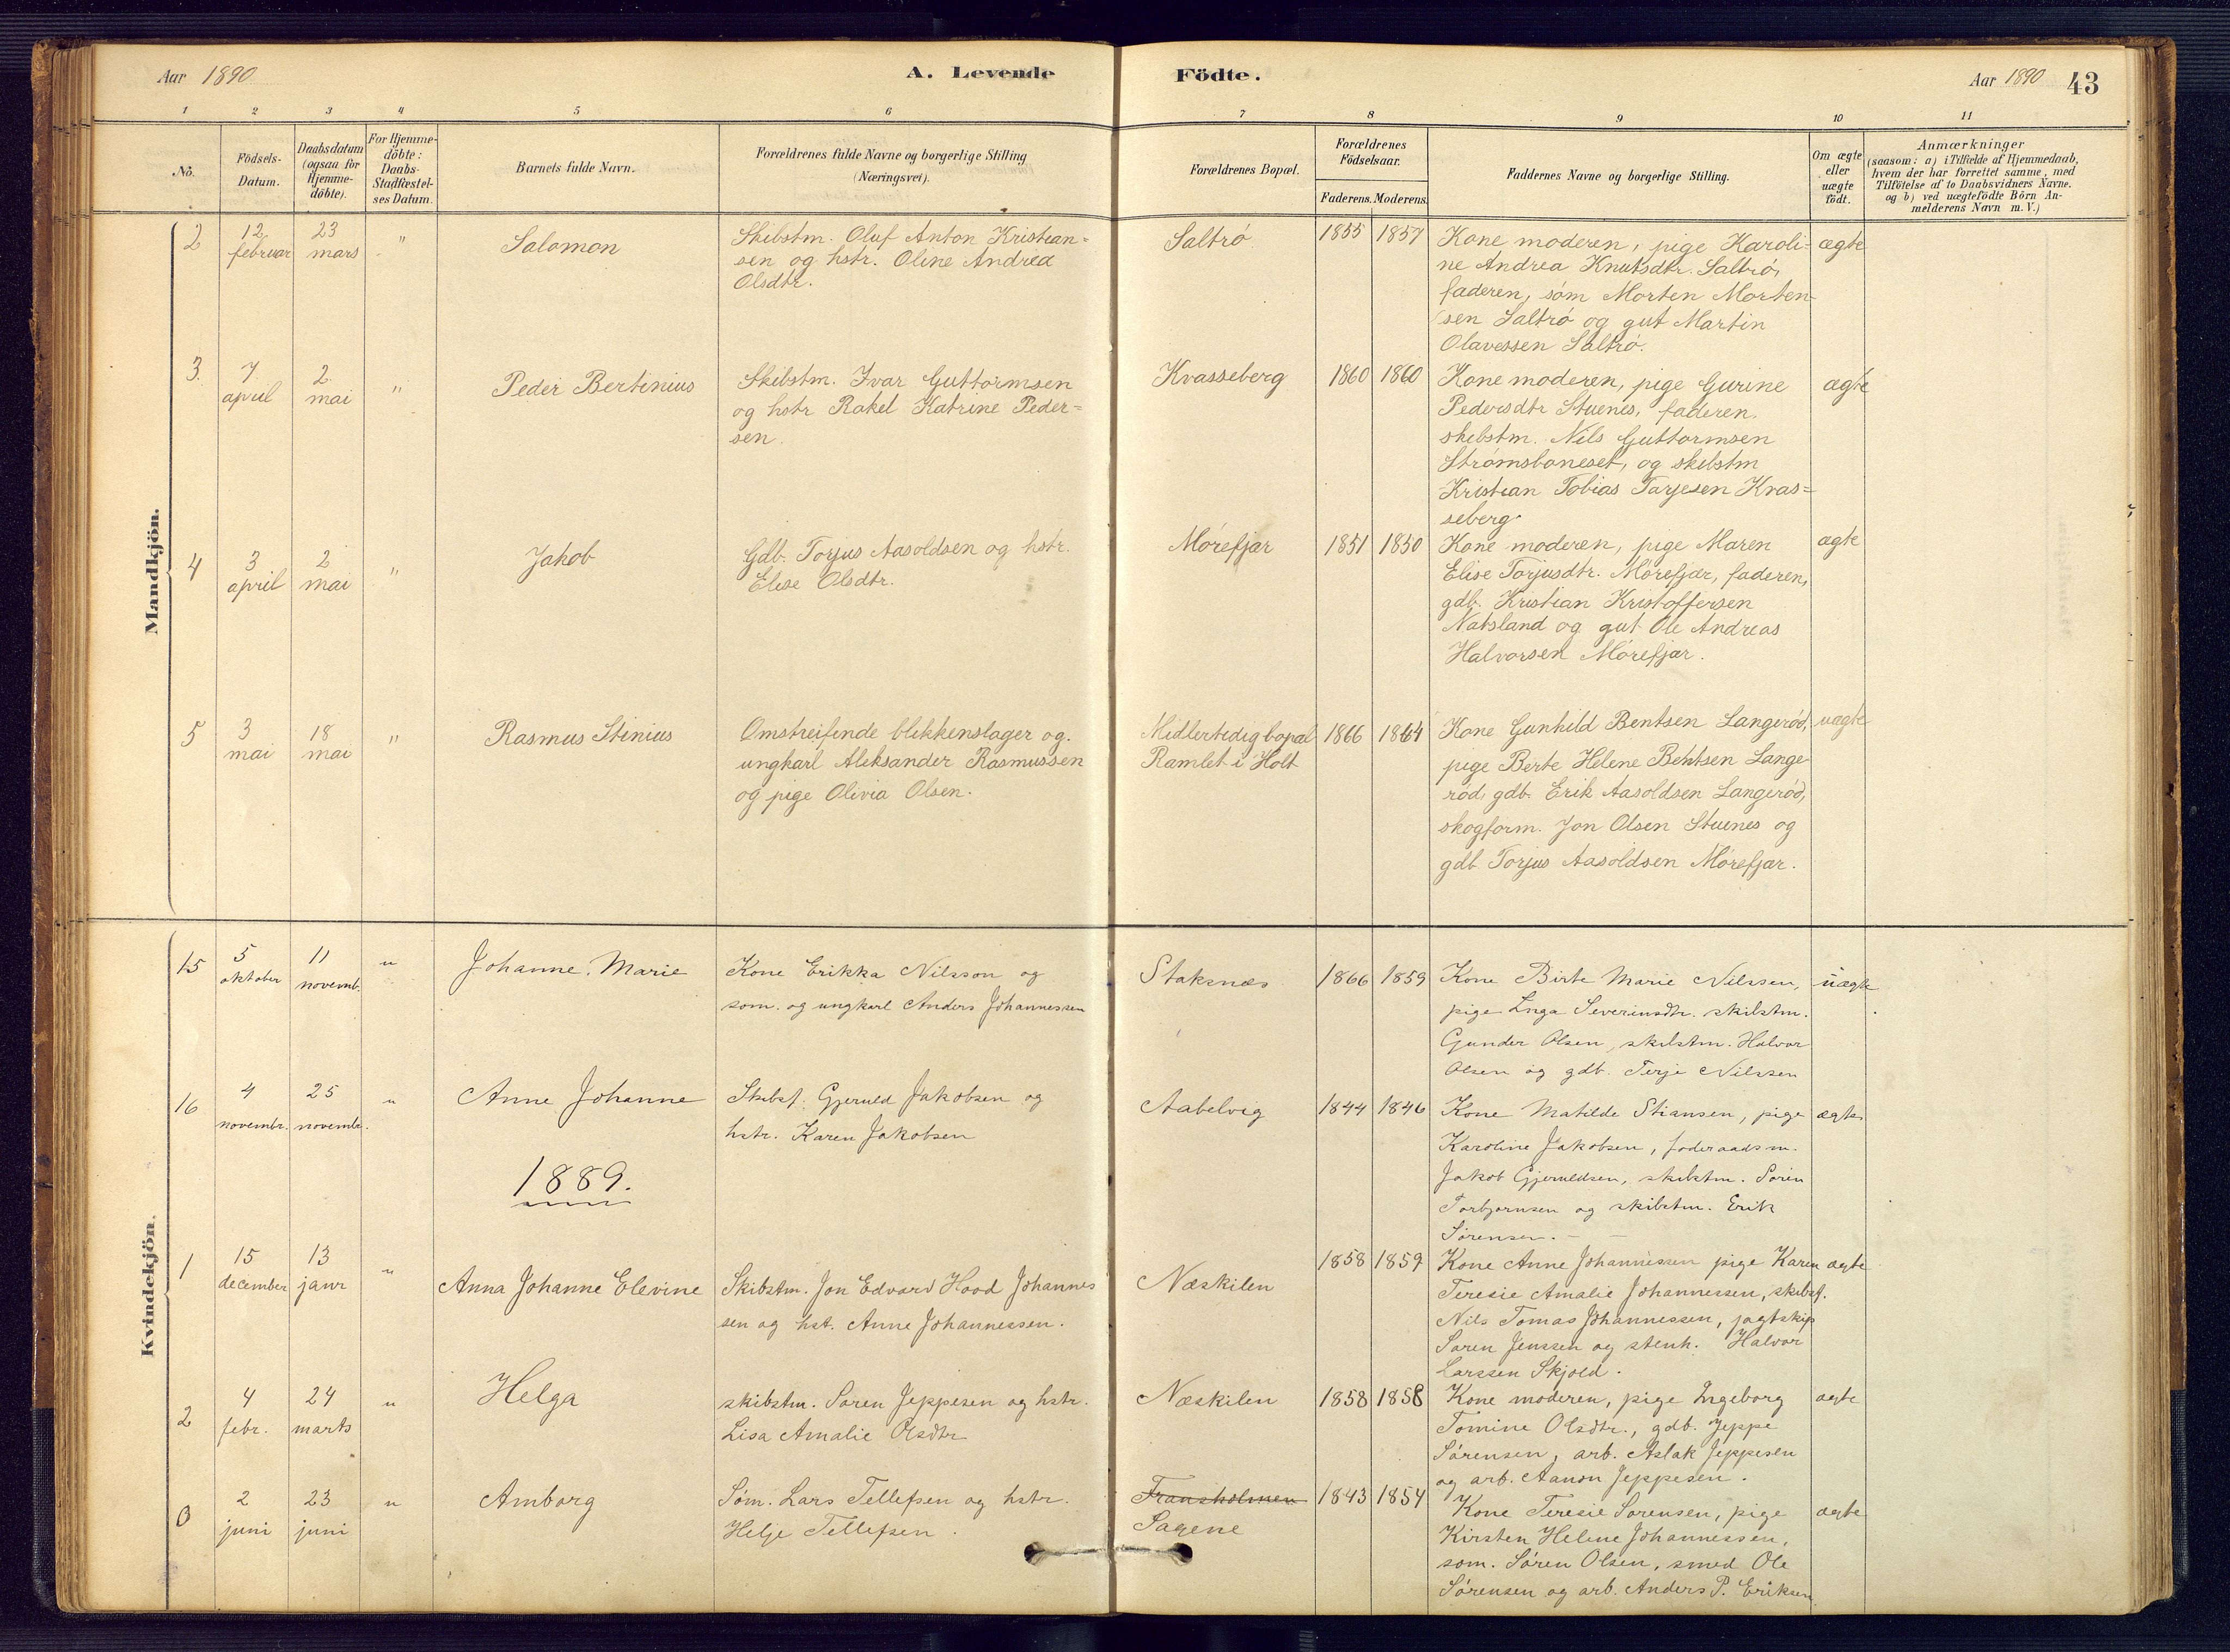 Aar 1890
A. Levende
Födte.
Aar 1890 43
1 2 3 4 5 6 7 8 9 10 11
No.
Födsels-
Datum.
Daabsdatum
(ogsaa for
Hjemme-
döbte).
For Hjemme-
döbte:
Daabs-
Stadfæstel-
ses Datum.
Barnets fulde Navn.
Forældrenes fulde Navne og borgerlige Stilling
(Næringsvei).
Forældrenes Bopæl.
Forældrenes
Födselsaar.
Faderens. Moderens.
Faddernes Navne og borgerlige Stilling.
Om ægte
eller
uægte
födt.
Anmærkninger
(saasom: a) i Tilfælde af Hjemmedaab,
hvem der har forrettet samme, med
Tilföielse af to Daabsvidners Navne.
og b) ved uægtefödte Börn An-
melderens Navn m. V.)
Mandkjön.
2
12 februar
23 mars
"
Salomon
Skibstm. Oluf Anton Kristian-
sen og hstr. Oline Andrea
Olsdtr.
Saltrø
1855 1857
Kone moderen, pige Karoli-
ne Andrea Knutsdtr. Saltrø,
faderen, søm Morten Morten-
sen Saltrø og gut Martin
Olavessen Saltrø.
ægte
3.
7 april
2 mai
"
Peder Bertinius
Skibstm. Ivar Guttormsen
og hstr Rakel Katrine Peder-
sen.
Kvasseberg
1860 1860
Kone moderen, pige Gurine
Pedersdtr Stuenes, faderen,
skibstm. Nils Guttormsen
Strømsboneset, og skibstm
Kristian Tobias Tarjesen Kvas-
seberg
ægte
4
3 april
2 mai
"
Jakob
Gdb. Torjus Aasoldsen og hstr.
Elise Olsdtr.
Mørefjær
1851 1850
Kone moderen, pige Maren
Elise Torjusdtr. Mørefjær, faderen,
gdb. Kristian Kristoffersen
Natsland og gut Ole Andreas
Halvorsen Mørefjær.
ægte
5
3 mai
18 mai
"
Rasmus Stinius
Omstreifende blikkenslager og
ungkarl Aleksander Rasmussen
og pige Olivia Olsen.
Midlertidig bopæl
Ramlet i Holt
1866 1864
Kone Gunhild Bentsen Langerød,
pige Berte Helene Bentsen Lange-
rød, gdb. Erik Aasoldsen Langerød,
skogform. Jon Olsen Stuenes og
gdb Torjus Aasoldsen Mørefjær.
uægte
Kvindekjön.
15
5 oktober
11 novemb.
"
Johanne Marie
Kone Erikka Nilsson og
søm. og ungkarl Anders Johannessen
Staksnæs
1866 1859
Kone Birte Marie Nilssen,
pige Inga Severinsdtr. skibstm.
Gunder Olsen, skibstm. Halvor
Olsen og gdb. Terje Nilssen
uægte
16
4 novembr.
25 novembr.
"
Anne Johanne
Skibsf. Gjeruld Jakobsen og
hstr. Karen Jakobsen
Aabelvig
1844 1846
Kone Matilde Stiansen, pige
Karoline Jakobsen, foderaadsm.
Jakob Gjeruldsen, skibstm. Søren
Torbjørnsen og skibstm. Erik
Sørensen. —
ægte
1889.
1
15 december
13 janr
"
Anna Johanne Elevine
Skibstm. Jon Edvard Hood Johannes
sen og hst. Anne Johannessen.
Næskilen
1858 1859
Kone Anne Johannessen pige Karen
Teresie Amalie Johannessen, skibsf.
Nils Tomas Johannessen, jagtskip
Søren Jenssen og stenh. Halvor
Larssen Skjold.
ægte
2
4 febr.
24 marts
"
Helga
skibstm. Søren Jeppesen og hstr.
Lisa Amalie Olsdtr
Næskilen
1858 1858
Kone moderen, pige Ingeborg
Tomine Olsdtr., gdb. Jeppe
Sørensen, arb. Aslak Jeppesen
og arb. Aanon Jeppesen.
ægte
3
2 juni
23 juni
"
Amborg
Søm. Lars Tellefsen og hstr.
Helje Tellefsen.
Fransholmen
Sagene
1843 1854
Kone Teresie Sørensen, pige
Kirsten Helene Johannessen,
søm. Søren Olsen, smed Ole
Sørensen og arb. Anders P. Eriksen
ægte